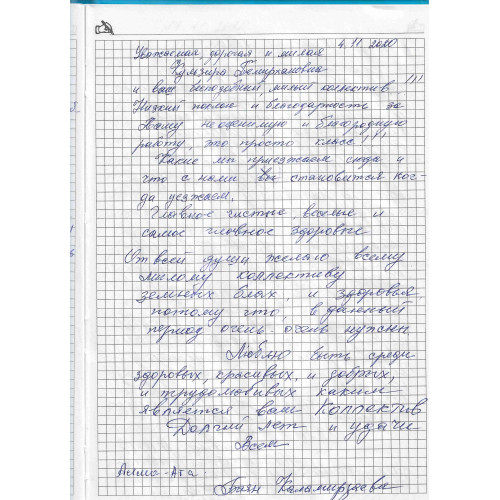 Уважаемая дорогая и милая 4.11 2020
Кульзира Темирхановна
и ваш исподобний, милый коллектив !!!
Низкий поклон и благодарность за
Вашу неоценимую и благородную
работу, это просто класс !!!
Какие мы приезжаем сюда и
что с нами становится ког-
да уезжаем.
Главное чистые, веселые и
самое главное здоровые
От всей души желаю всему
милому коллективу
земных благ, и здоровья,
потому что, в данный
период очень-очень нужны
Люблю быть среди
здоровых, красивых, и добрых,
и трудолюбивых каким
является ваш Коллектив
Долгий лет и удачи
Всем
Алма-Ата.